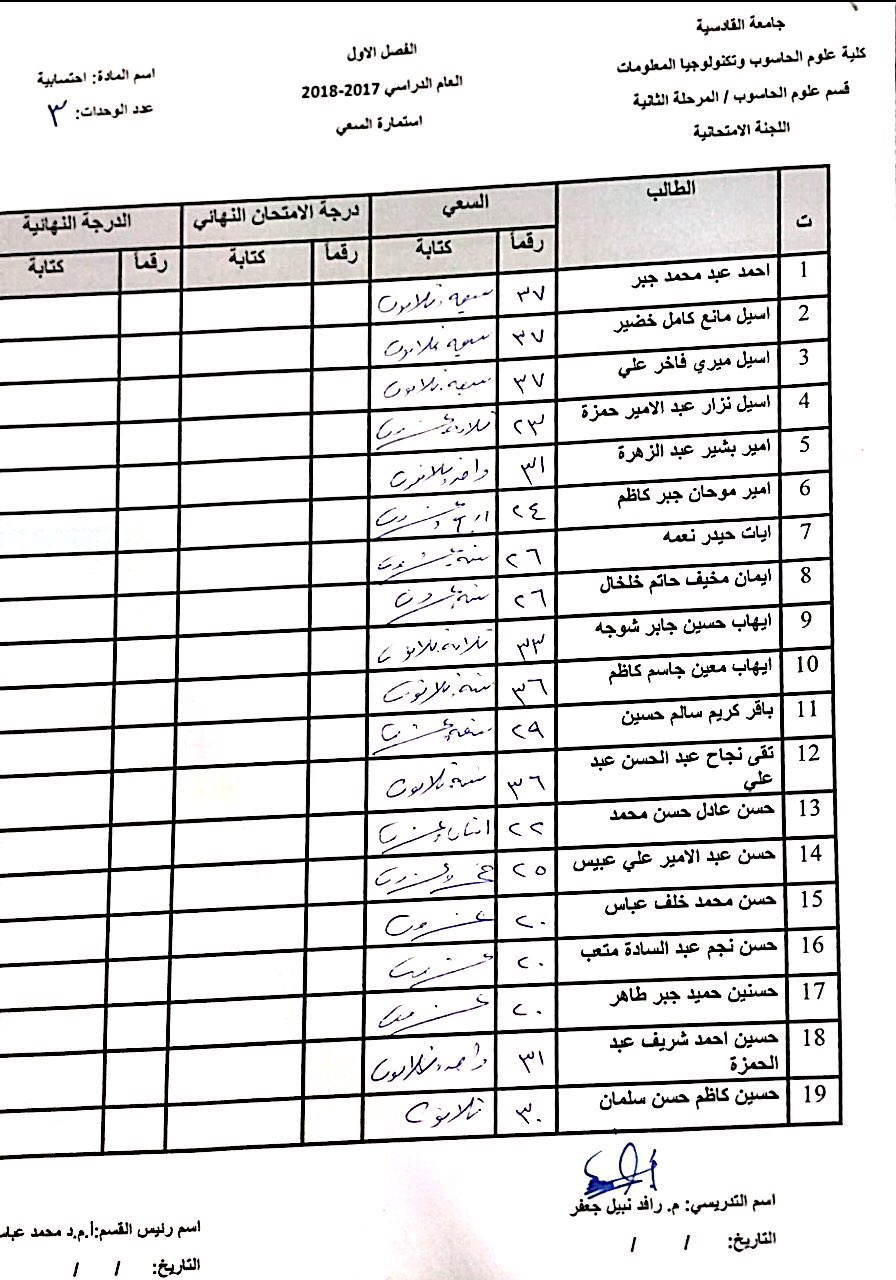 جامعة القادسية
كلية علوم الحاسوب وتكنولوجيا المعلومات
قسم علوم الحاسوب / المرحلة الثانية
اللجنة الامتحانية
الفصل الاول
العام الدراسي 2017-2018
استمارة السعي
اسم المادة: احتسابية
عدد الوحدات: ٣
ت الطالب السعي درجة الامتحان النهائي الدرجة النهائية
رقماً كتابة رقماً كتابة رقماً كتابة
1 احمد عبد محمد جبر ٣٧ سبعة وثلاثون
2 اسيل مانع كامل خضير ٣٧ سبعة وثلاثون
3 اسيل ميري فاخر علي ٣٧ سبعة وثلاثون
4 اسيل نزار عبد الامير حمزة ٢٣ ثلاثة وعشرون
5 امير بشير عبد الزهرة ٣١ واحد وثلاثون
6 امير موحان جبر كاظم ٢٤ اربعة وعشرون
7 ايات حيدر نعمه ٢٦ ستة وعشرون
8 ايمان مخيف حاتم خلخال ٢٦ ستة وعشرون
9 ايهاب حسين جابر شوجه ٣٣ ثلاثة وثلاثون
10 ايهاب معين جاسم كاظم ٣٦ ستة وثلاثون
11 باقر كريم سالم حسين ٢٩ تسعة وعشرون
12 تقى نجاح عبد الحسن عبد ٣٦ ستة وثلاثون
علي
13 حسن عادل حسن محمد ٢٢ اثنان وعشرون
14 حسن عبد الامير علي عبيس ٢٥ خمسة وعشرون
15 حسن محمد خلف عباس ٢٠ عشرون
16 حسن نجم عبد السادة متعب ٢٠ عشرون
17 حسنين حميد جبر طاهر ٢٠ عشرون
18 حسين احمد شريف عبد ٣١ واحد وثلاثون
الحمزة
19 حسين كاظم حسن سلمان ٣٠ ثلاثون
اسم التدريسي: م. رافد نبيل جعفر
التاريخ: / /
اسم رئيس القسم:أ.م.د محمد عباس
التاريخ: / /